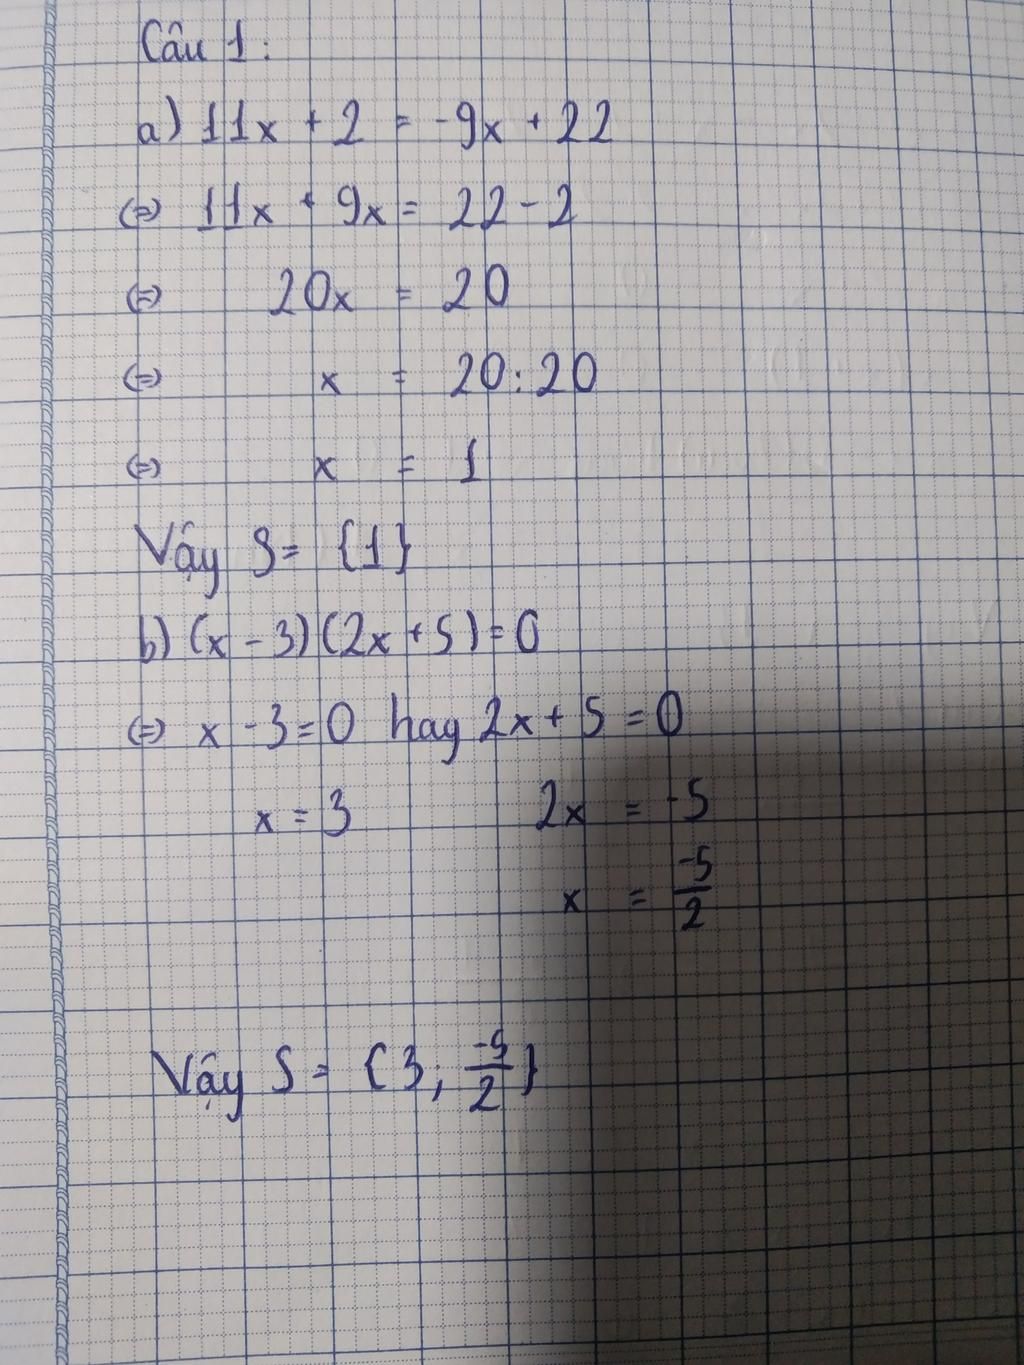 Câu 1:
a) 11x + 2 = -9x + 22
(=) 11x + 9x = 22 - 2
(=) 20x = 20
(=) x = 20:20
(=) x = 1
Vậy S = {1}
b) (x - 3)(2x + 5) = 0
(=) x - 3 = 0 hay 2x + 5 = 0
x = 3 2x = -5
x = -5/2
Vậy S = {3; -5/2}